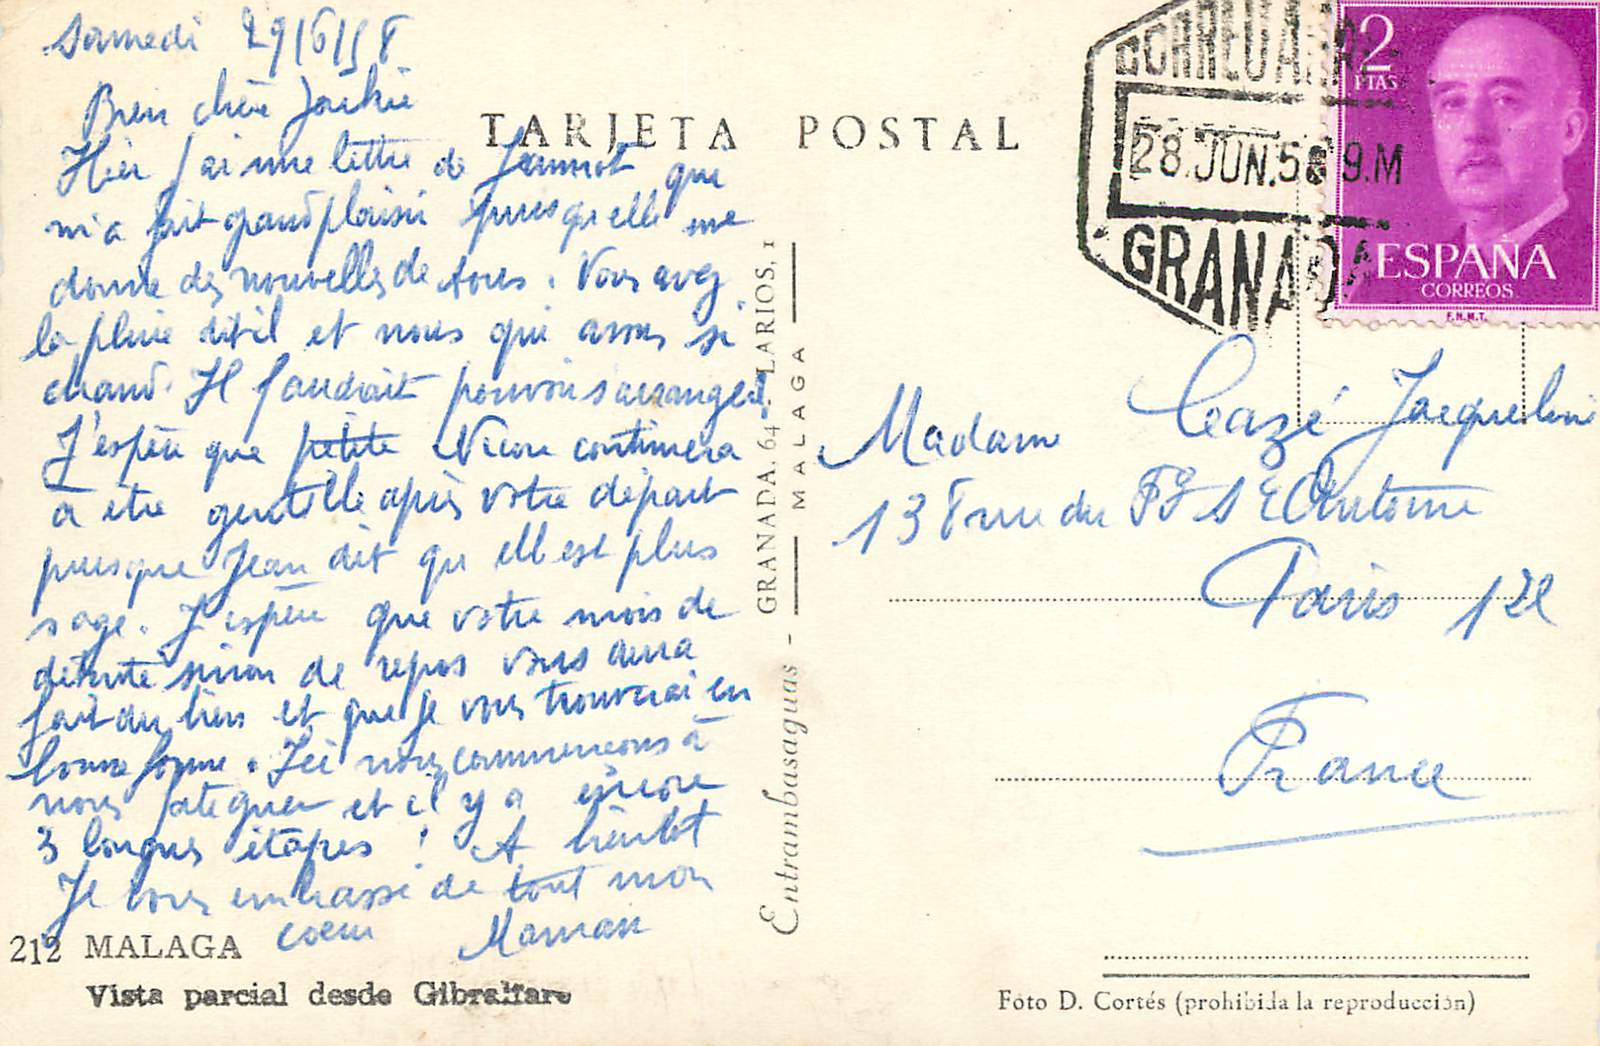 Samedi 29/6/58
Bien chère Jackie
Hier j'ai une lettre de Jeannot qui
m'a fait grand plaisir puisqu'elle me
donne des nouvelles de tous. Vous avez
la pluie dit il et nous qui avons si
chaud. Il faudrait pouvoir s'arranger.
J'espère que petite continuera
à être gentille après votre départ
puisque Jean dit qu'elle est plus
sage. J'espère que votre mois de
détente sinon de repos vous aura
fait du bien et que je vous trouverai en
bonne forme. Ici nous commencons à
nous fatiguer et il y a encore
3 longues étapes ! A bientôt
Je vous embrasse de tout mon
coeur Maman
212 MALAGA
Vista parcial desde Gibralfaro
TARJETA POSTAL
Entrambasaguas - GRANADA, 64 - LARIOS, 1
MALAGA
CORREO
28.JUN.58 9.M
GRANADA
2
PTAS
ESPAÑA
CORREOS
F.N.M.T.
Madame Cazé Jacqueline
138 rue du Fg St Antoine
Paris 12e
France
Foto D. Cortés (prohibida la reproducción)